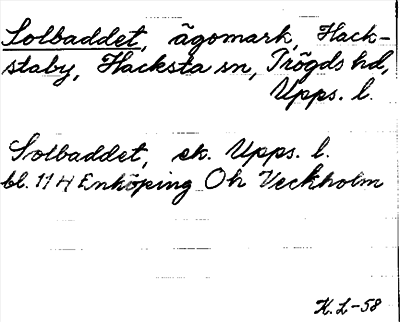 Solbaddet, ägomark, Hack-
staby, Hacksta sn, Trögds hd,
Upps. l.
Solbaddet, ek. Upps. l.
bl. 11 H Enköping Oh Veckholm
K.L-58